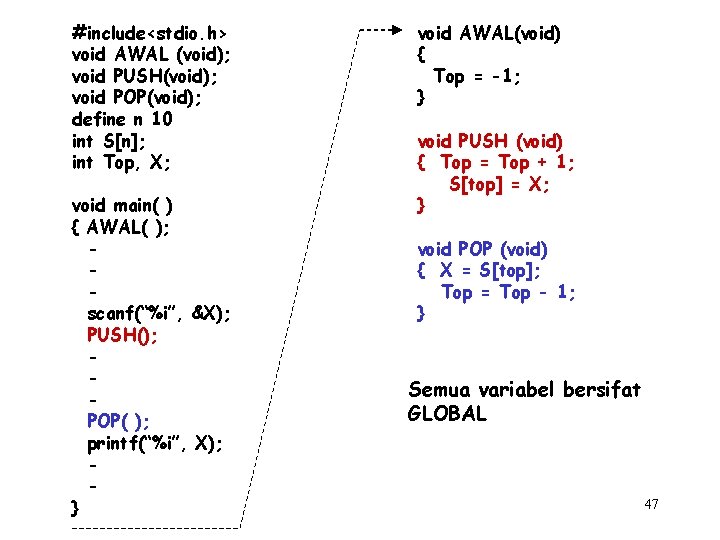 #include<stdio.h>
void AWAL (void);
void PUSH(void);
void POP(void);
define n 10
int S[n];
int Top, X;
void main( )
{ AWAL( );
-
-
-
scanf(“%i”, &X);
PUSH();
-
-
-
POP( );
printf(“%i”, X);
-
-
}
void AWAL(void)
{
Top = -1;
}
void PUSH (void)
{ Top = Top + 1;
S[top] = X;
}
void POP (void)
{ X = S[top];
Top = Top - 1;
}
Semua variabel bersifat
GLOBAL
47